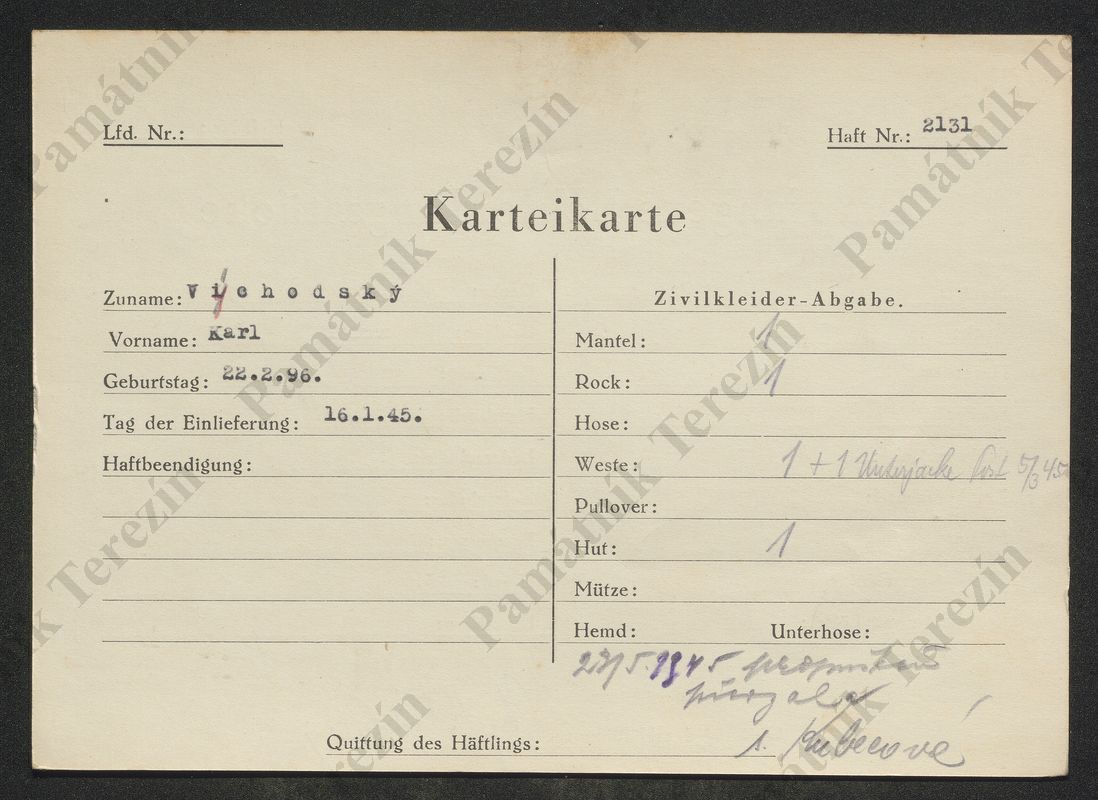 Lfd. Nr.:
Haft Nr.: 2131
Karteikarte
Zuname: Východský
Vorname: Karl
Geburtstag: 22.2.96.
Tag der Einlieferung: 16.1.45.
Haftbeendigung:
Zivilkleider-Abgabe.
Mantel: 1
Rock: 1
Hose:
Weste: 1 + 1 Unterjacke Post 5/3 45
Pullover:
Hut: 1
Mütze:
Hemd: Unterhose:
5 1945
Quittung des Häftlings: s. Kubecové
Památník Terezín
Památník Terezín
Památník Terezín
Památník Terezín
Památník Terezín